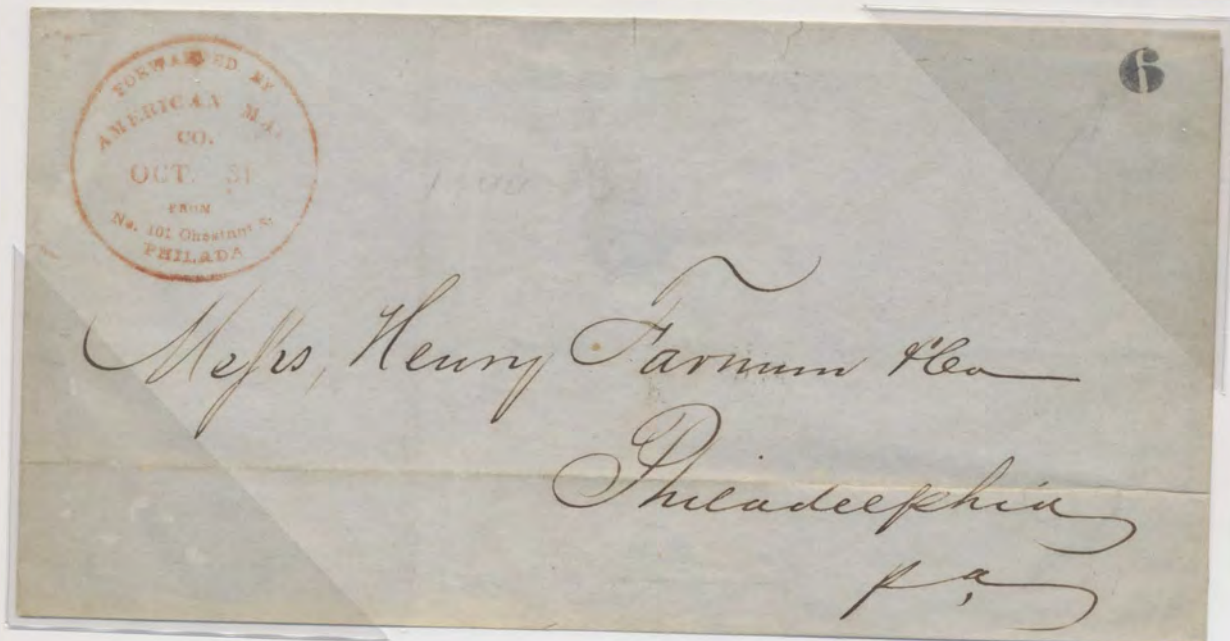 FORWARDED BY
AMERICAN MAIL
CO.
OCT. 31
FROM
No. 101 Chestnut St
PHILADA
6
Mess, Henry Farnum & Co
Philadelphia
pa,